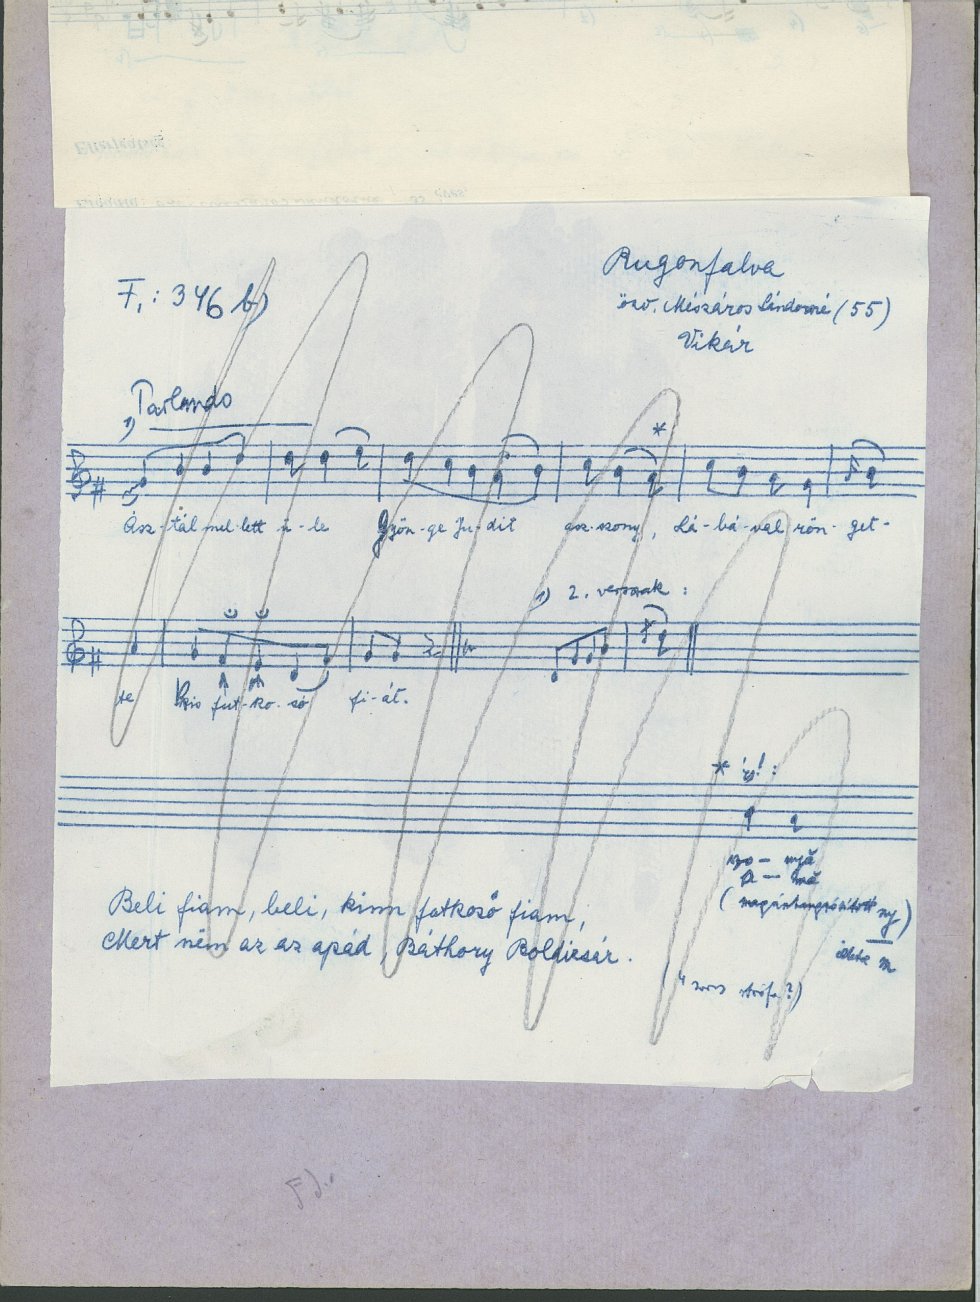 F. : 346 b)
Rugonfalva
özv. Mészáros Sándorné (55)
Vikár
Parlando
1)
*
Ász-tal mel-lett ü-le Gyön-ge Ju-dit asz-szony, Lá-bá-val rön-get-
1) 2. versszak :
te Kis fut-ko-só fi-át.
* így! :
szo - nyă
a - mă
ny)
Beli fiam, beli, kinn futkosó fiam,
Mert ném az az apád, Báthory Boldizsár.
(4 soros strófa?)